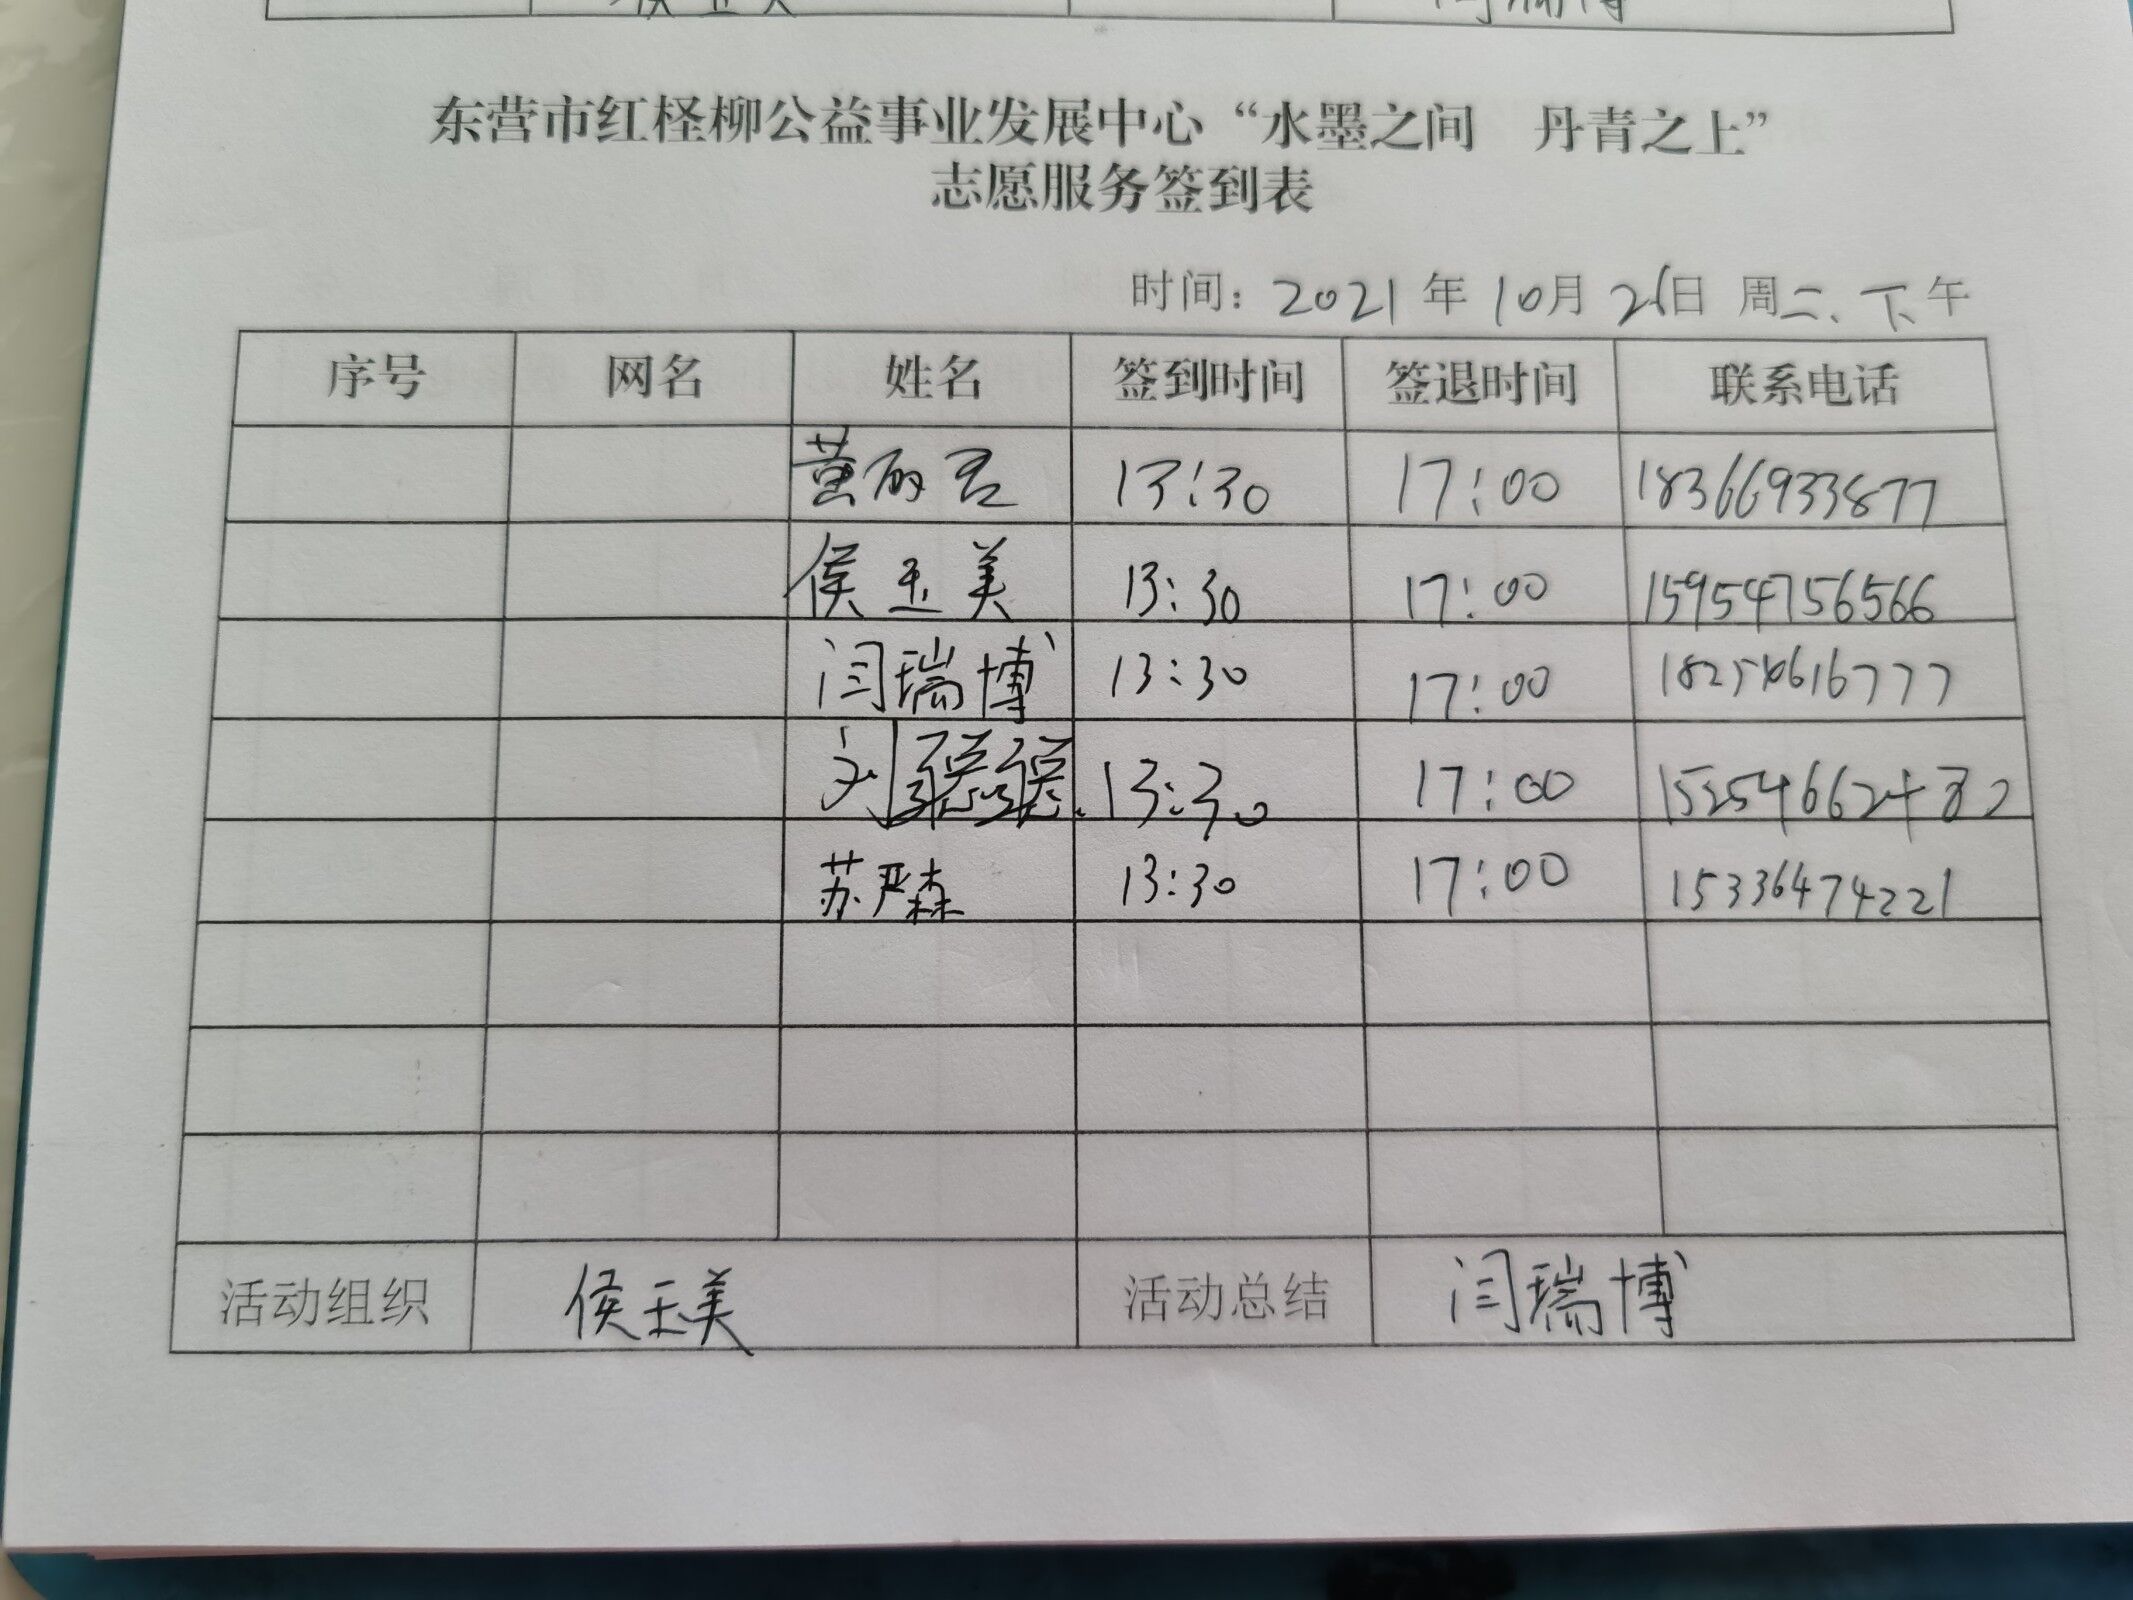 东营市红柽柳公益事业发展中心“水墨之间 丹青之上”
志愿服务签到表
时间：2021年10月26日 周二、下午
序号 网名 姓名 签到时间 签退时间 联系电话
黄丽君 13:30 17:00 18366933877
侯玉美 13:30 17:00 15954756566
闫瑞博 13:30 17:00 18254616777
刘聪聪 13:30 17:00
苏严森 13:30 17:00 15336474221
活动组织 侯玉美 活动总结 闫瑞博